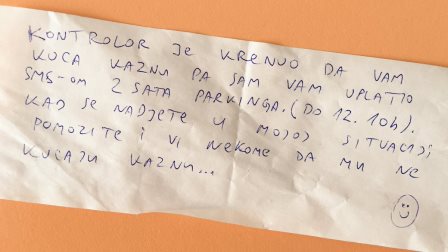 KONTROLOR JE KRENUO DA VAM
KUCA KAZNU PA SAM VAM UPLATIO
SMS-om 2 SATA PARKINGA. (DO 12.10h).
KAD SE NADJETE U MOJOJ SITUACIJI
POMOZITE I VI NEKOME DA MU NE
KUCAJU KAZNU...